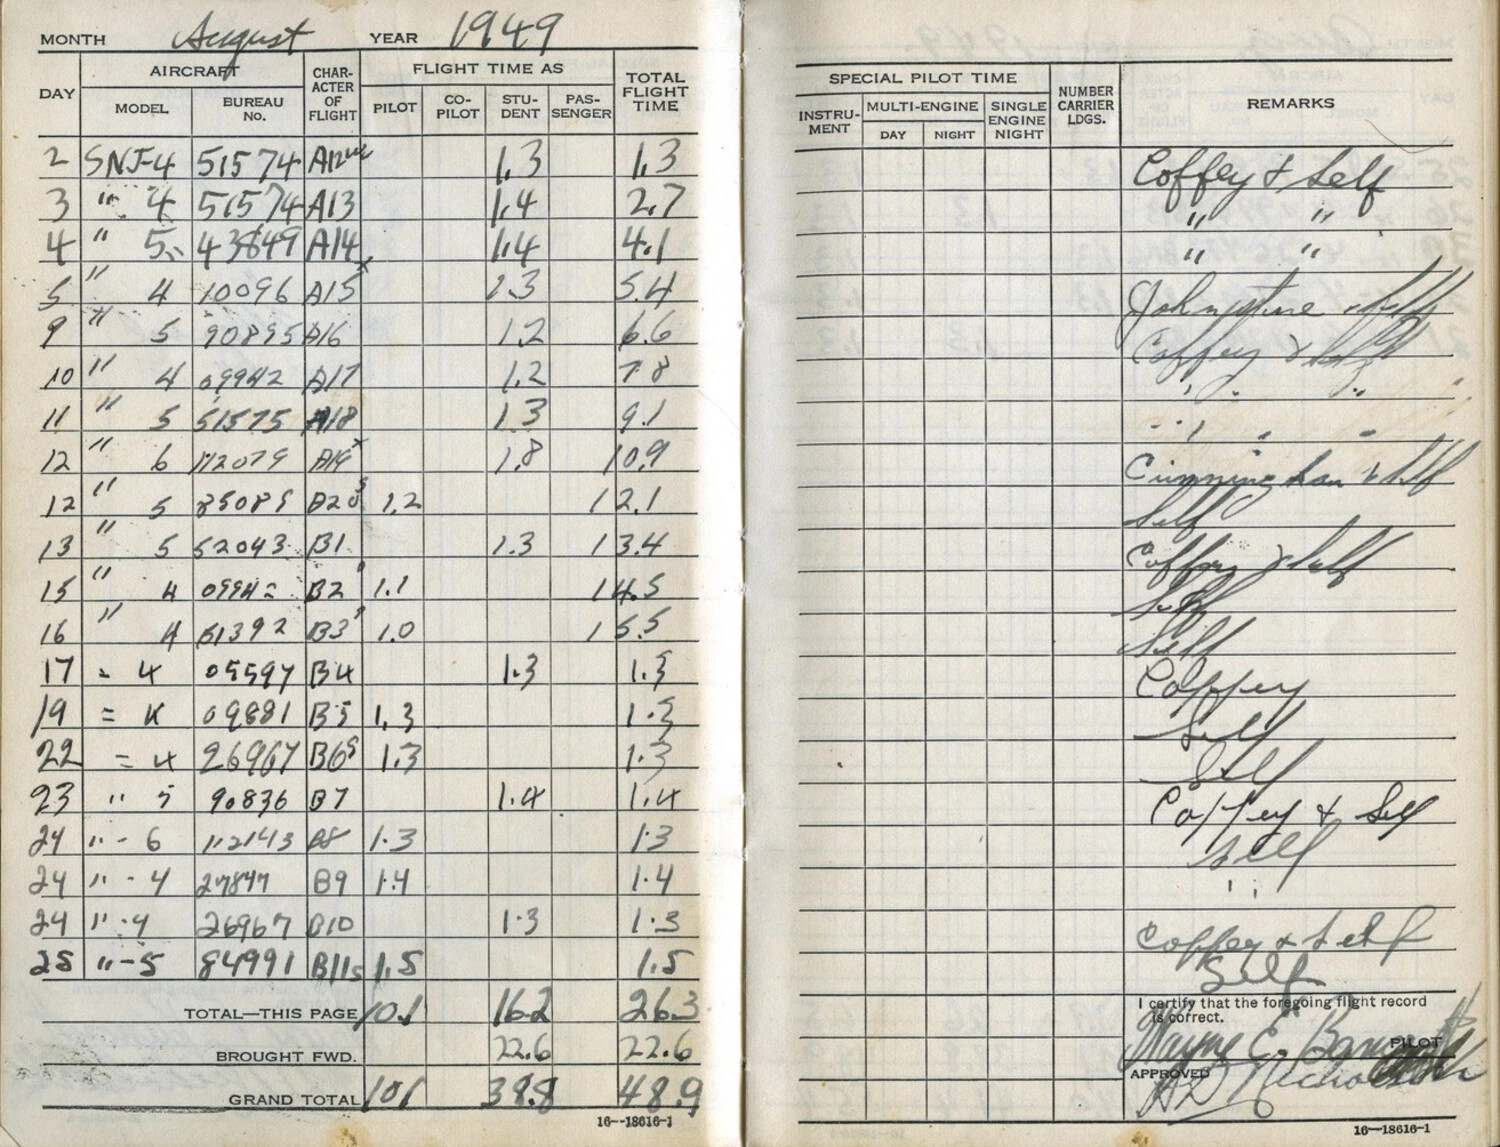 MONTH August YEAR 1949
DAY AIRCRAFT CHARACTER OF FLIGHT FLIGHT TIME AS TOTAL FLIGHT TIME
MODEL BUREAU No. PILOT CO-PILOT STU-DENT PAS-SENGER
2 SNJ-4 51574 A12 1.3 1.3
3 " 4 51574 A13 1.4 2.7
4 " 5 43849 A14 1.4 4.1
5 " 4 10096 A15x 1.3 5.4
9 " 5 90895 A16 1.2 6.6
10 " 4 09942 A17 1.2 7.8
11 " 5 51575 A18 1.3 9.1
12 " 6 112079 A19x 1.8 10.9
12 " 5 85089 B20s 1.2 12.1
13 " 5 52043 B1 1.3 13.4
15 " 4 09942 B2 1.1 14.5
16 " 4 51392 B3 1.0 15.5
17 " 4 05597 B4 1.3 1.3
19 = 4 09881 B5 1.3 1.3
22 = 4 26967 B6s 1.3 1.3
23 " 5 90836 B7 1.4 1.4
24 " - 6 112143 B8 1.3 1.3
24 " - 4 27847 B9 1.4 1.4
24 " - 4 26967 B10 1.3 1.3
25 " - 5 84991 B11s 1.5 1.5
TOTAL—THIS PAGE 10.1 16.2 26.3
BROUGHT FWD. 22.6 22.6
GRAND TOTAL 10.1 38.8 48.9
16—18616-1
SPECIAL PILOT TIME NUMBER CARRIER LDGS. REMARKS
INSTRU-MENT MULTI-ENGINE SINGLE ENGINE NIGHT
DAY NIGHT
Coffey & Self
" "
" "
Johnstine & Self
Coffey & Self
" "
" "
Cunningham & Self
Self
Coffey & Self
Self
Self
Coffey
Self
Self
Coffey & Self
Self
" "
Coffey & Self
Self
I certify that the foregoing flight record
is correct.
Wayne E. PILOT
APPROVED
16—18616-1